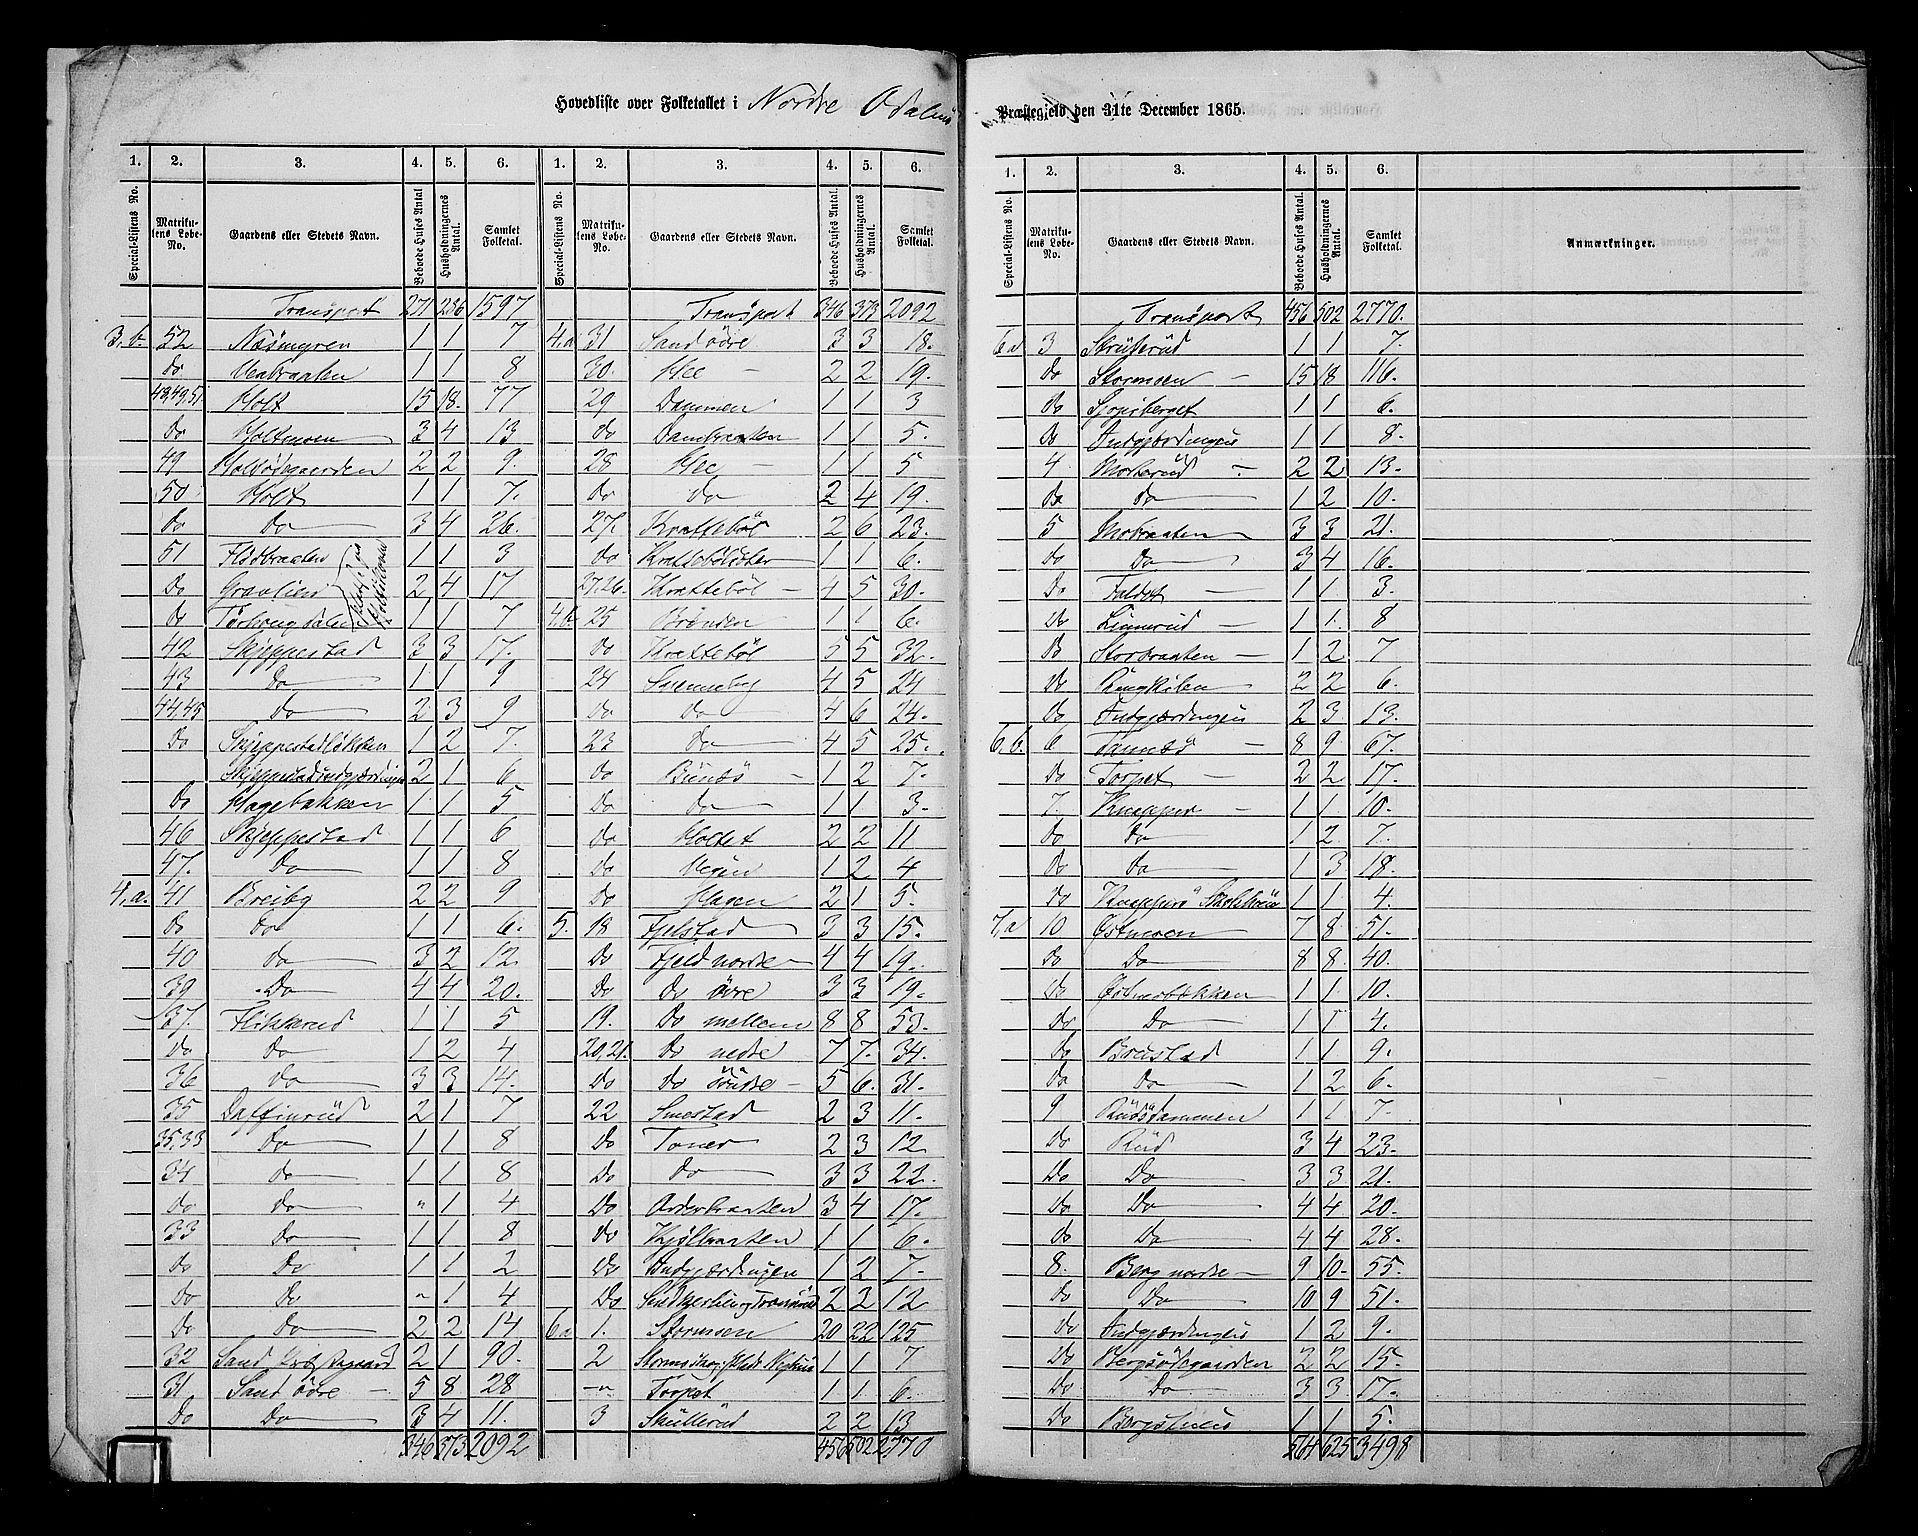 Hovedliste over Folketallet i Nordre Odalens
Præstegjeld den 31te December 1865.
1. 2. 3. 4. 5. 6. 1. 2. 3. 4. 5. 6.
Special-Listens No. Matrikulens Løbe-No. Gaardens eller Stedets Navn. Beboede Huses Antal Husholdningernes Antal. Samlet Folketal. Special-Listens No. Matrikulens Løbe-No. Gaardens eller Stedets Navn. Beboede Huses Antal. Husholdningernes Antal. Samlet Folketal.
Transport 271 286 1597
3,b. 52 Næsmyren 1 1 7
do 1 1 8
49,49,51 Holt 15 18. 77
do Holtmoen 3 4 13
49 Holtødegaarden 2 2 9.
50. Holt 1 1 7.
do do 3 4 26.
51 Flisbraaten 1 1 3
do Gravlien 2 4 17
do 1 1 7
42 Skjeppestad 3 3 17.
43 do 1 1 9
44,45 do 2 3 9
do Skjeppestadløkken 1 2 7.
Skjeppestadindgjærdingen 2 1 6
do Hagebakken 1 1 5
46 Skjeppestad 1 1 6
47. Do 1 1 8
4,a. 41 Breiby 2 2 9
do Do 1 1 6.
40 do 3 2 12
39 Do 4 4 20.
37. Flikkerud 1 1 5
do Do 1 2 4
36 do 3 3 14.
35 Daffinrud 2 1 7
35,33 Do 1 1 8
34 do 1 1 8
do do " 1 4
33 do 1 1 8
do Do 1 1 2
do Do " 1 4
do Do 2 2 14
32 Sand Præstegaard 2 1 90.
31 Sand øvre 5 8 28
do Do 3 4 11.
346 373 2092
Transport 346 373 2092
4,a 31 Sand øvre 3 3 18.
30. Hee 2 2 19.
29 Dammen 1 1 3
do Dambraaten 1 1 5.
28 Hee 1 1 5
do do 2 4 19.
27. Krattebøl 2 6 23.
do 1 1 6.
27,26. Krattebøl 4 5 30.
4,b. 25 Brønden 1 1 6.
do Krattebøl 5 5 32.
24 Svenneby 4 5 24
do Do 4 6 24.
23 do 4 5 25.
do Bunæs 1 2 7.
do Do 1 1 3.
do Holtet 2 2 11
do 1 2 4
do Hagen 2 1 5.
5. 18 Fjelstad 3 3 15.
do Fjeld nordre 4 4 19.
Do Do øvre 3 3 19.
19. Do mellem 8 8 53.
20,21. Do nedre 7 7. 34.
Do Do søndre 5 6. 31.
22 Smestad 2 3 11.
Do Toner 2 3 12
Do Do 3 3 22.
Do 3 4 17.
do 1 1 6.
do Indgjærdingen 1 2 7.
Do 2 2 12
6a 1. Stormoen 20 22 125
2 1 1 7
-"- Torpet 1 1 6.
3 Skullerud 2 2 13
456 502 2770
1. 2. 3. 4. 5. 6.
Special-Listens No. Matrikulens Løbe-No. Gaardens eller Stedets Navn. Beboede Huses Antal. Husholdningernes Antal. Samlet Folketal. Anmærkninger.
Transport 456 502 2770.
6a 3 1 1 7.
do Stormoen 15 18 116.
do 1 1 6.
do Indgjærdingen 1 1 8.
4. Morterud 2 2 13.
Do Do 1 2 10.
5 Mobraaten 3 3 21.
do Do 3 4 16.
Do Faldet 1 1 3.
Do Linnerud 1 1 8
Do Storbraaten 1 2 7
Do 2 2 6.
Do Indgjærdingen 2 3 13.
6,b. 6 Tannæs 8 9 67.
Do Torpet 2 2 17.
7. Knapper 1 1 10.
do Do 1 2 7.
do Do 1 3 18.
do 1 1 4.
7,a 10 Østmoen 7 8 51.
Do Do 8 8 40.
do Østmobakken 1 1 10.
Do Do 1 1 4.
do Brustad 1 1 9.
do Do 1 2 6.
9 Rudsdammen 1 1 7.
do Rud 3 4 23.
Do Do 3 3 21.
do Do 4 4 20.
do Do 4 4 28.
8. Berg nordre 9 10 55.
Do Do 10 9 51.
do Indgjærdingen 1 2 9.
Do Bergsødegaarden 2 2 15.
Do Do 3 3 17.
Do 1 1 5.
564 625 3498